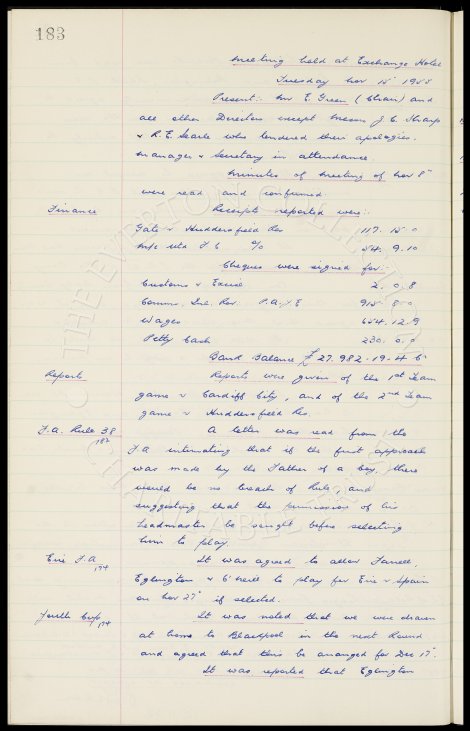 183
Meeting held at Exchange Hotel
Tuesday Nov 15th 1955
Present:- Mr E. Green (Chair) and
all other Directors except Messrs J.C. Sharp
& R.E. Searle who tendered their apologies.
Manager & Secretary in attendance.
Minutes of meeting of Nov 8th
were read and confirmed.
Finance Receipts reported were:-
Gate v Huddersfield Res 117. 15. 0
M/c Utd F C % 54. 9. 10
Cheques were signed for:-
Customs & Excise 2. 0. 8
Comm. Inl. Rev. P.A.Y.E 915. 8. 0
Wages 654. 12. 9
Petty Cash 230. 0. 0
Bank Balance £27.982-19-4
Reports Reports were given of the 1st Team
game v Cardiff City, and of the 2nd Team
game v Huddersfield Res.
F.A. Rule 38 A letter was read from the
182
F.A intimating that if the first approach
was made by the Father of a boy, there
would be no breach of Rule, and
suggesting that the permission of his
headmaster be sought before selecting
him to play.
Eire F.A 174 It was agreed to allow Farrell,
Eglington & O'Neill to play for Eire v Spain
on Nov 27th if selected.
Youth Cup 174 It was noted that we were drawn
at home to Blackpool in the next Round
and agreed that this be arranged for Dec 17th.
It was reported that Eglington
THE EVERTON COLLECTION
CHARITABLE TRUST